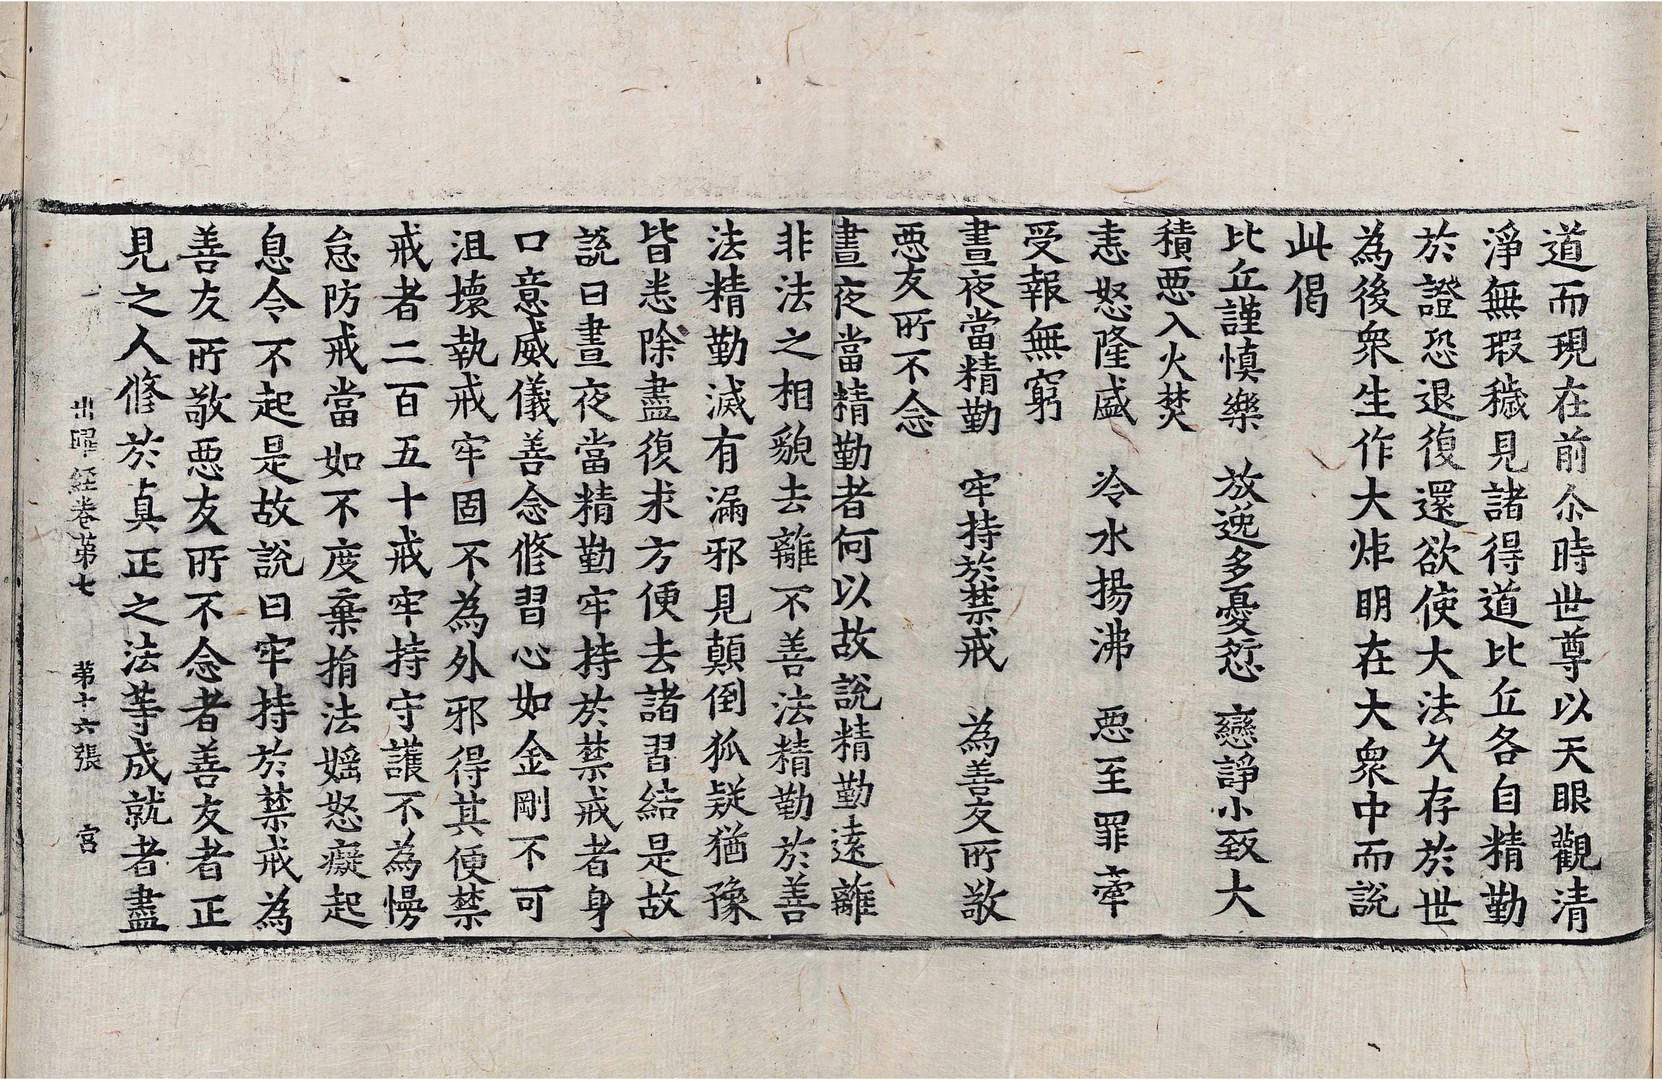 道而現在前尒時世尊以天眼觀清
淨無瑕穢見諸得道比丘各自精勤
於證恐退復還欲使大法久存於世
為後衆生作大炬明在大衆中而說
此偈
比丘謹慎樂　放逸多憂愆　戀諍小致大
積惡入火焚
恚怒隆盛　冷水揚沸　惡至罪牽
受報無窮
晝夜當精勤　牢持於禁戒　為善友所敬
惡友所不念
晝夜當精勤者何以故說精勤遠離
非法之相貌去離不善法精勤於善
法精勤滅有漏邪見顛倒狐疑猶豫
皆悉除盡復求方便去諸習結是故
說曰晝夜當精勤牢持於禁戒者身
口意威儀善念修習心如金剛不可
沮壞執戒牢固不為外邪得其便禁
戒者二百五十戒牢持守護不為慢
怠防戒當如不度棄捐法婬怒癡起
息令不起是故說曰牢持於禁戒為
善友所敬惡友所不念者善友者正
見之人修於真正之法等成就者盡
出曜經卷第七　第十六張　宮